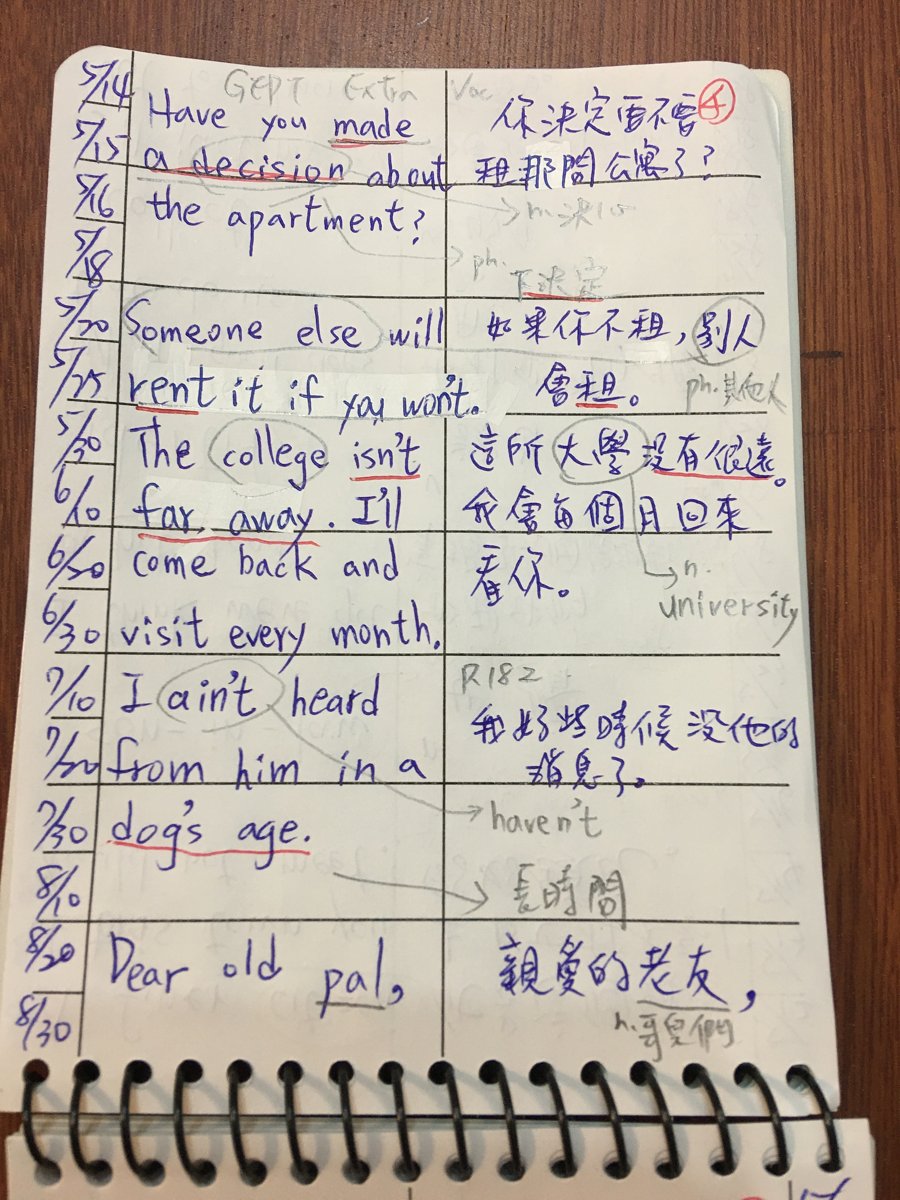 GEPT Extra Voc
4
5/14
5/15
5/16
5/18
Have you made
a decision about
the apartment?
你決定要不要
租那間公寓了?
n.決定
ph.
下決定
5/20
5/25
Someone else will
rent it if you won't.
如果你不租,別人
會租。
ph.其他人
5/30
6/10
6/20
6/30
The college isn't
far away. I'll
come back and
visit every month.
這所大學沒有很遠。
我會每個月回來
看你。
n.
university
7/10
7/20
7/30
8/10
I ain't heard
from him in a
dog's age.
P.182
我好些時候沒他的
消息了。
haven't
長時間
8/20
8/30
Dear old pal,
親愛的老友,
n.哥兒們